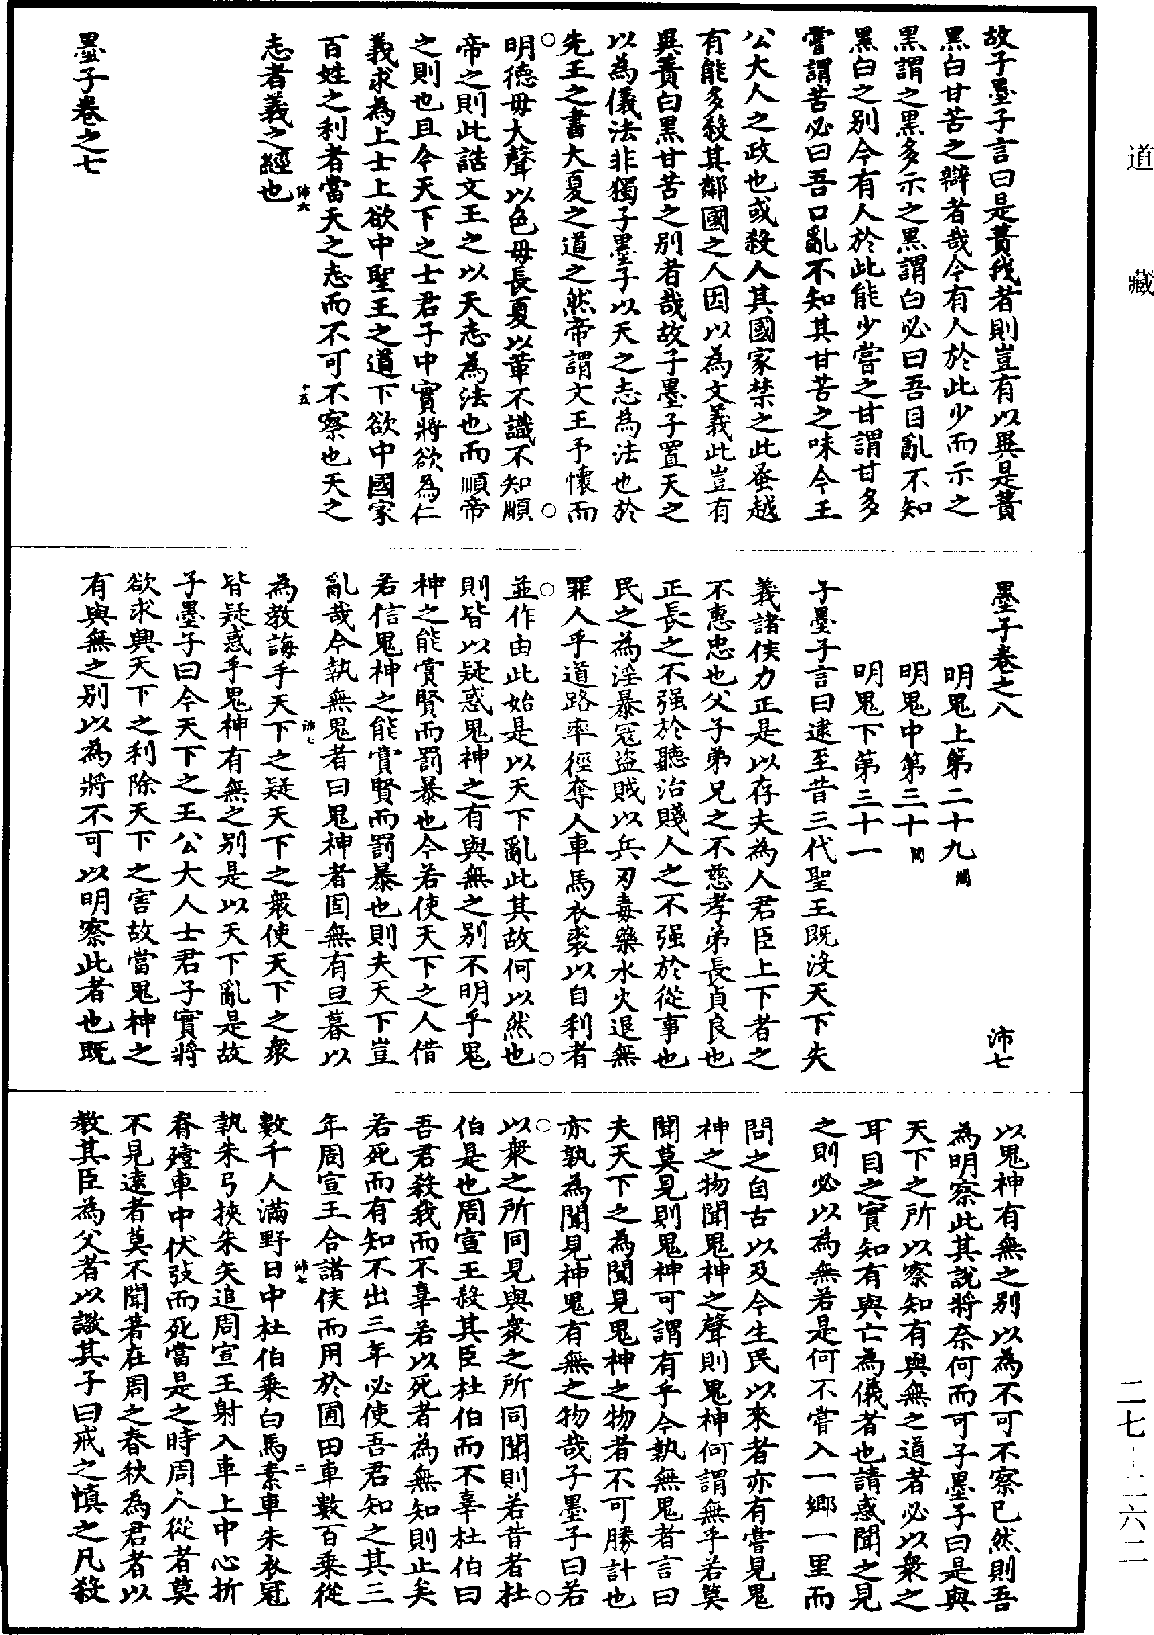 道藏
故子墨子言曰是蕡我者則豈有以異是蕡
黑白甘苦之辯者哉今有人於此少而示之
黑謂之黑多示之黑謂白必曰吾目亂不知
黑白之別今有人於此能少嘗之甘謂甘多
嘗謂苦必曰吾口亂不知其甘苦之味今王
公大人之政也或殺人其國家禁之此蚤越
有能多殺其鄰國之人因以為文義此豈有
異蕡白黑甘苦之別者哉故子墨子置天之
以為儀法非獨子墨子以天之志為法也於
先王之書大夏之道之然帝謂文王予懷而
明德毋大聲以色毋長夏以革不識不知順
帝之則此誥文王之以天志為法也而順帝
之則也且今天下之士君子中實將欲為仁
義求為上士上欲中聖王之道下欲中國家
百姓之利者當天之志而不可不察也天之
沛六 十五
志者義之經也
墨子卷之七
墨子卷之八 沛七
明鬼上第二十九闕
明鬼中第三十闕
明鬼下第三十一
子墨子言曰逮至昔三代聖王既沒天下失
義諸侯力正是以存夫為人君臣上下者之
不惠忠也父子弟兄之不慈孝弟長貞良也
正長之不强於聽治賤人之不强於從事也
民之為淫暴寇盜賊以兵刃毒藥水火退無
罪人乎道路率徑奪人車馬衣裘以自利者
並作由此始是以天下亂此其故何以然也
則皆以疑惑鬼神之有與無之別不明乎鬼
神之能賞賢而罰暴也今若使天下之人借
若信鬼神之能賞賢而罰暴也則夫天下豈
亂哉今執無鬼者曰鬼神者固無有旦暮以
沛七 一
為教誨乎天下之疑天下之衆使天下之衆
皆疑惑乎鬼神有無之別是以天下亂是故
子墨子曰今天下之王公大人士君子實將
欲求興天下之利除天下之害故當鬼神之
有與無之別以為將不可以明察此者也既
以鬼神有無之別以為不可不察已然則吾
為明察此其說將奈何而可子墨子曰是與
天下之所以察知有與無之道者必以衆之
耳目之實知有與亡為儀者也請惑聞之見
之則必以為無若是何不嘗入一鄉一里而
問之自古以及今生民以來者亦有嘗見鬼
神之物聞鬼神之聲則鬼神何謂無乎若莫
聞莫見則鬼神可謂有乎今執無鬼者言曰
夫天下之為聞見鬼神之物者不可勝計也
亦孰為聞見神鬼有無之物哉子墨子曰若
以衆之所同見與衆之所同聞則若昔者杜
伯是也周宣王殺其臣杜伯而不辜杜伯曰
吾君殺我而不辜若以死者為無知則止矣
若死而有知不出三年必使吾君知之其三
年周宣王合諸侯而田於圃田車數百乘從
沛七 二
數千人滿野日中杜伯乘白馬素車朱衣冠
執朱弓挾朱矢追周宣王射入車上中心折
脊殪車中伏弢而死當是之時周人從者莫
不見遠者莫不聞著在周之春秋為君者以
教其臣為父者以譤其子曰戒之慎之凡殺
二七—二六二